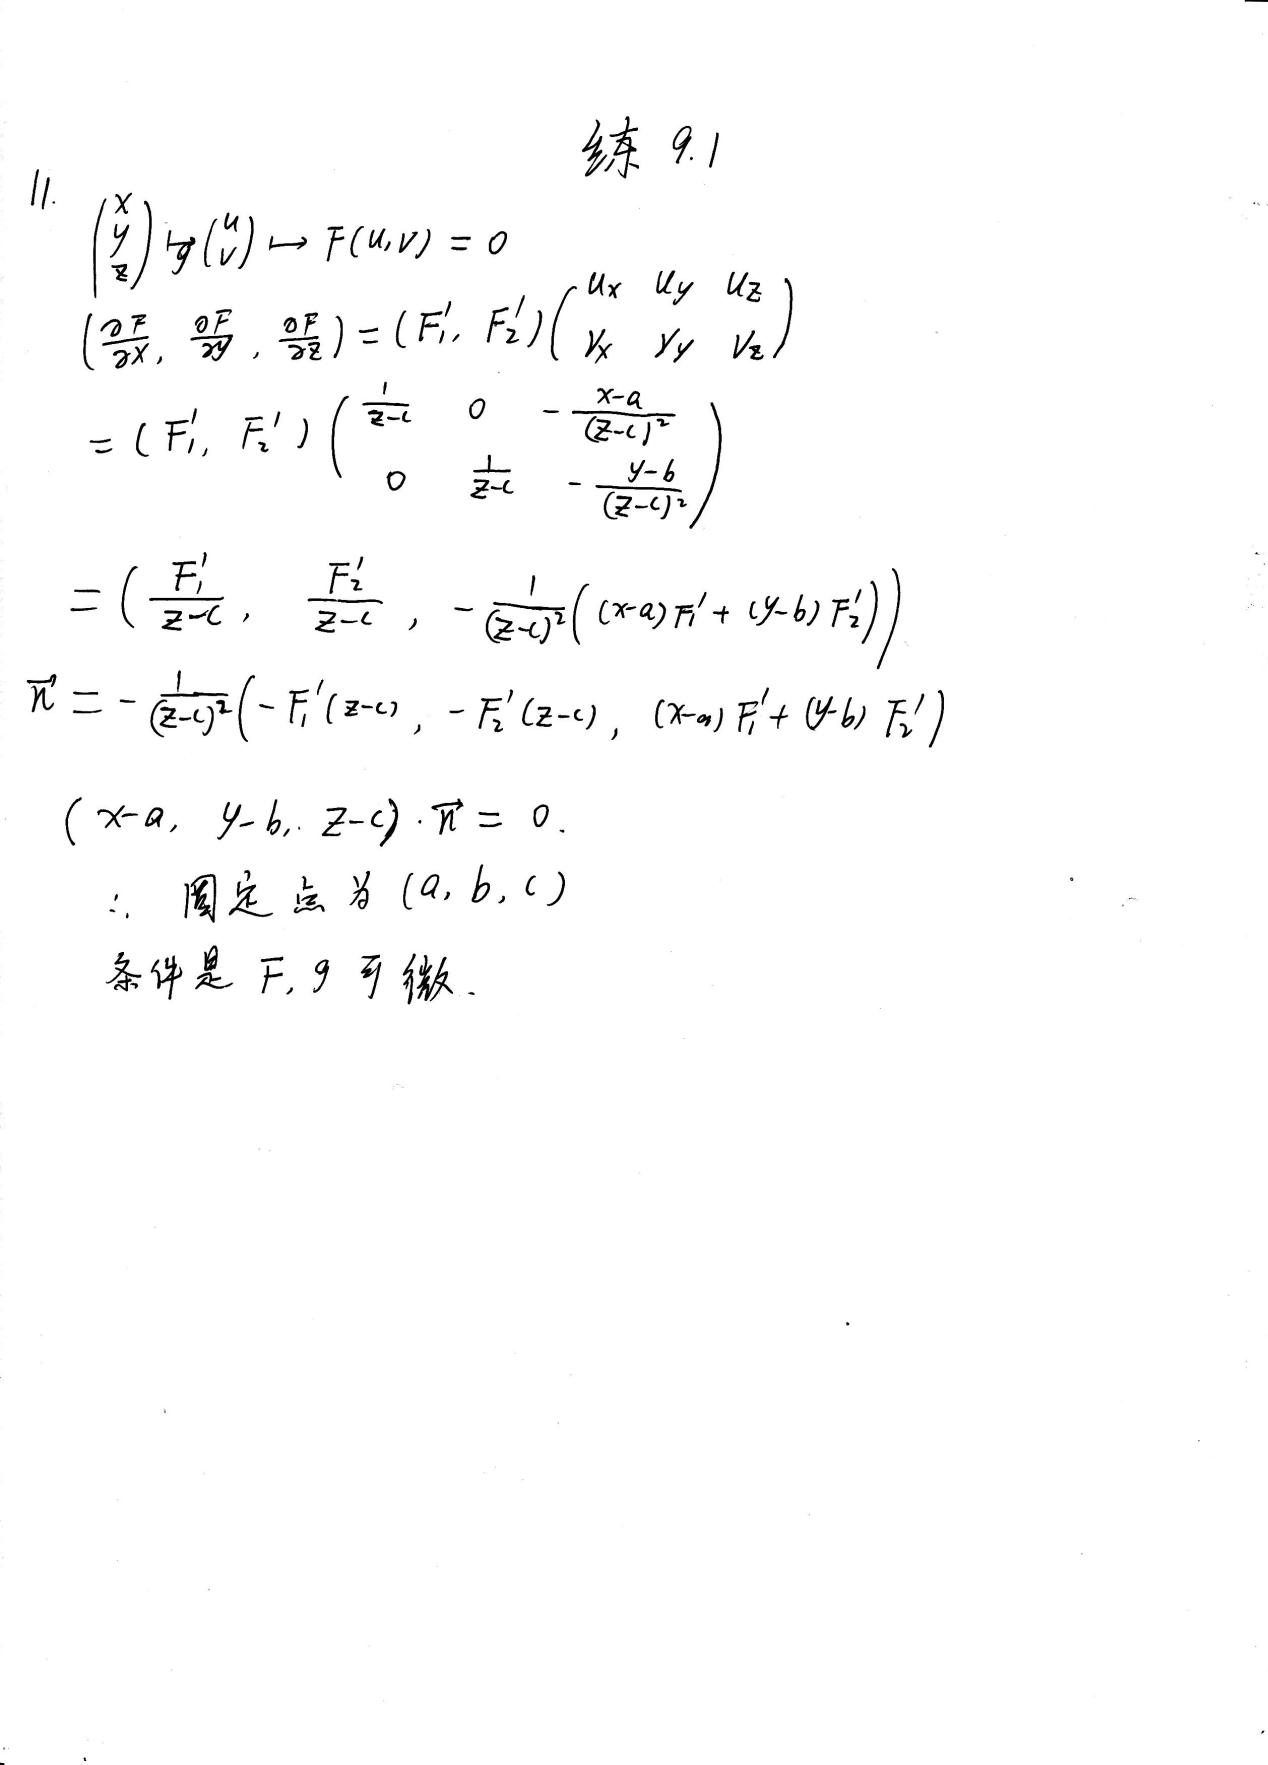 练 9.1
11.
(x y z) ↦g (u v) ↦ F(u,v) = 0
(∂F/∂x, ∂F/∂y, ∂F/∂z) = (F₁′, F₂′) (u_x u_y u_z; v_x v_y v_z)
= (F₁′, F₂′) (1/(z-c) 0 -(x-a)/(z-c)²; 0 1/(z-c) -(y-b)/(z-c)²)
= (F₁′/(z-c), F₂′/(z-c), -1/(z-c)² ((x-a)F₁′ + (y-b)F₂′))
n⃗ = -1/(z-c)² (-F₁′(z-c), -F₂′(z-c), (x-a)F₁′ + (y-b)F₂′)
(x-a, y-b, z-c)·n⃗ = 0.
∴ 固定点为 (a, b, c)
条件是 F, g 可微.